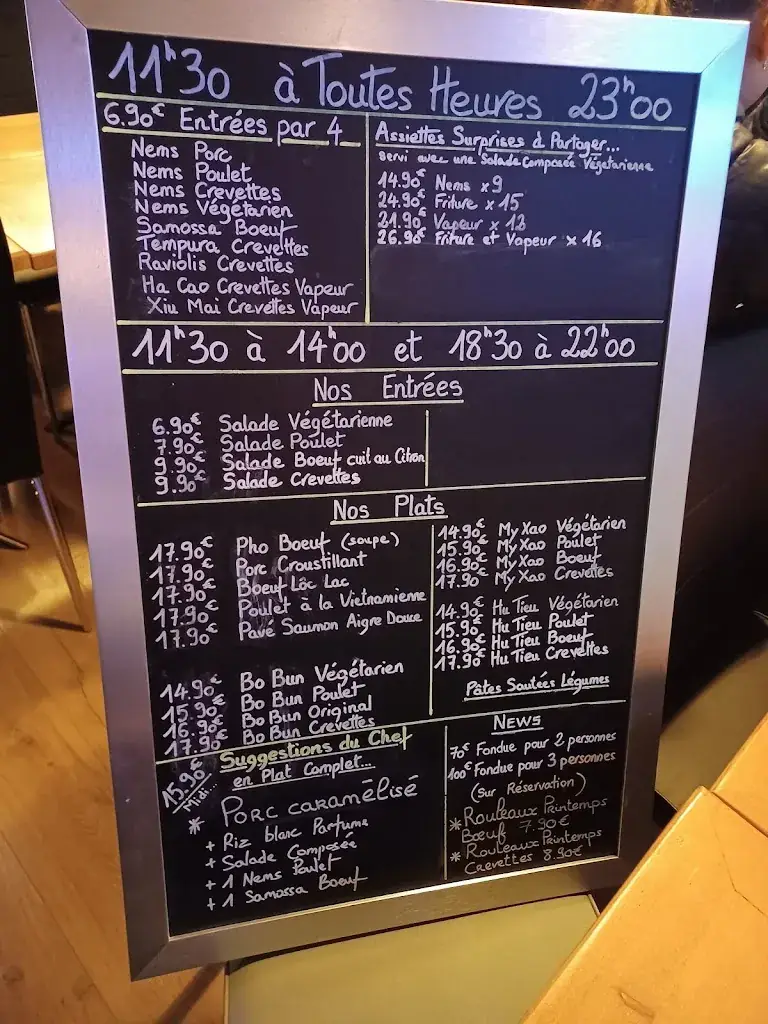 11h30 à Toutes Heures 23h00
6.90€ Entrées par 4
Nems Porc
Nems Poulet
Nems Crevettes
Nems Végétarien
Samossa Boeuf
Tempura Crevettes
Raviolis Crevettes
Ha Cao Crevettes Vapeur
Xiu Mai Crevettes Vapeur
Assiettes Surprises à Partager...
servi avec une Salade Composée Végétarienne
14.90€ Nems x 9
24.90€ Friture x 15
21.90€ Vapeur x 12
26.90€ Friture et Vapeur x 16
11h30 à 14h00 et 18h30 à 22h00
Nos Entrées
6.90€ Salade Végétarienne
7.90€ Salade Poulet
9.90€ Salade Boeuf cuit au Citron
9.90€ Salade Crevettes
Nos Plats
17.90€ Pho Boeuf (soupe)
17.90€ Porc Croustillant
17.90€ Boeuf Lôc Lac
17.90€ Poulet à la Vietnamienne
17.90€ Pavé Saumon Aigre Douce
14.90€ Bo Bun Végétarien
15.90€ Bo Bun Poulet
16.90€ Bo Bun Original
17.90€ Bo Bun Crevettes
14.90€ My Xao Végétarien
15.90€ My Xao Poulet
16.90€ My Xao Boeuf
17.90€ My Xao Crevettes
14.90€ Hu Tieu Végétarien
15.90€ Hu Tieu Poulet
16.90€ Hu Tieu Boeuf
17.90€ Hu Tieu Crevettes
Pâtes Sautées Légumes
Suggestions du Chef
en Plat Complet...
15.90€
Midi...
* Porc caramélisé
+ Riz blanc Parfumé
+ Salade Composée
+ 1 Nems Poulet
+ 1 Samossa Boeuf
News
70€ Fondue pour 2 personnes
100€ Fondue pour 3 personnes
(Sur Réservation)
* Rouleaux Printemps
Bœuf 7.90€
* Rouleaux Printemps
Crevettes 8.90€